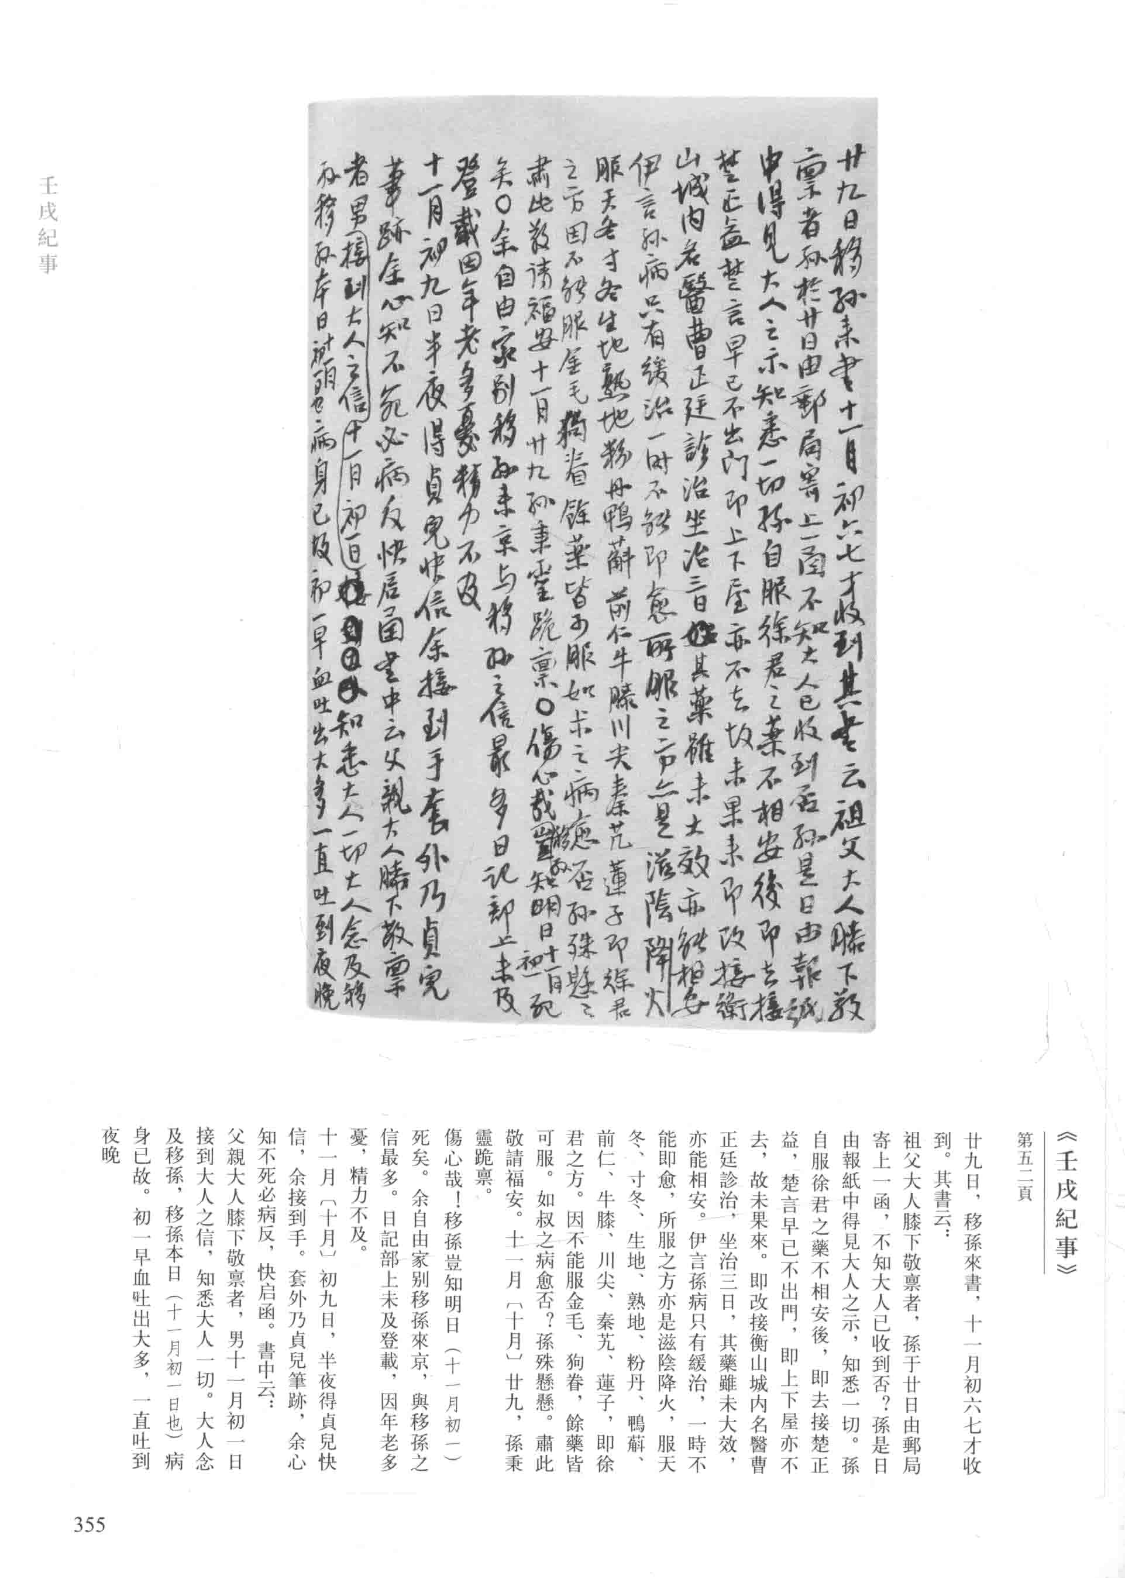 壬戌紀事
廿九日移孙来書十一月初六七才收到其書云祖父大人膝下敬
禀者孙於廿日由郵局寄上一函不知大人已收到否孙是日由報紙
中得見大人之示知悉一切孫自服徐君之藥不相安後即去接
楚正益楚言早已不出門即上下屋亦不去故未果来即改接衡
山城内名醫曹正廷診治坐治三日其藥雖未大效亦能相安
伊言孙病只有緩治一时不能即愈所服之方亦是滋陰降火
服天冬寸冬生地熟地粉丹鴨蘄前仁牛膝川尖秦艽蓮子即徐君
之方因不能服金毛狗眷餘藥皆可服如尗之病愈否孙殊懸之
肅此敬請福安十一月廿九孙秉靈跪禀〇傷心哉移孙豈知明日十一月初一死
矣〇余自由家别移孙来京与移孙之信最多日记部上未及
登載因年老多憂精力不及
十一月初九日半夜得貞兒快信余接到手套外乃貞兒
筆跡余心知不死必病反快启函書中云父親大人膝下敬禀
者男接到大人之信十一月初一日知悉大人一切大人念及移
孙移孙本日病身已故初一早血吐出大多一直吐到夜晚
《壬戌紀事》
第五二頁
廿九日，移孫來書，十一月初六七才收
到。其書云：
祖父大人膝下敬禀者，孫于廿日由郵局
寄上一函，不知大人已收到否？孫是日
由報紙中得見大人之示，知悉一切。孫
自服徐君之藥不相安後，即去接楚正
益，楚言早已不出門，即上下屋亦不
去，故未果來。即改接衡山城内名醫曹
正廷診治，坐治三日，其藥雖未大效，
亦能相安。伊言孫病只有緩治，一時不
能即愈，所服之方亦是滋陰降火，服天
冬、寸冬、生地、熟地、粉丹、鴨蘄、
前仁、牛膝、川尖、秦艽、蓮子，即徐
君之方。因不能服金毛、狗眷，餘藥皆
可服。如叔之病愈否？孫殊懸懸。肅此
敬請福安。十一月〔十月〕廿九，孫秉
靈跪禀。
傷心哉！移孫豈知明日（十一月初一）
死矣。余自由家别移孫來京，與移孫之
信最多。日記部上未及登載，因年老多
憂，精力不及。
十一月〔十月〕初九日，半夜得貞兒快
信，余接到手。套外乃貞兒筆跡，余心
知不死必病反，快启函。書中云：
父親大人膝下敬禀者，男十一月初一日
接到大人之信，知悉大人一切。大人念
及移孫，移孫本日（十一月初一日也）病
身已故。初一早血吐出大多，一直吐到
夜晚
355